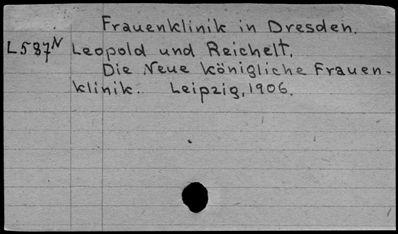 Frauenklinik in Dresden.
L587N Leopold und Reichelt.
Die Neue königliche Frauen-
klinik. Leipzig, 1906.